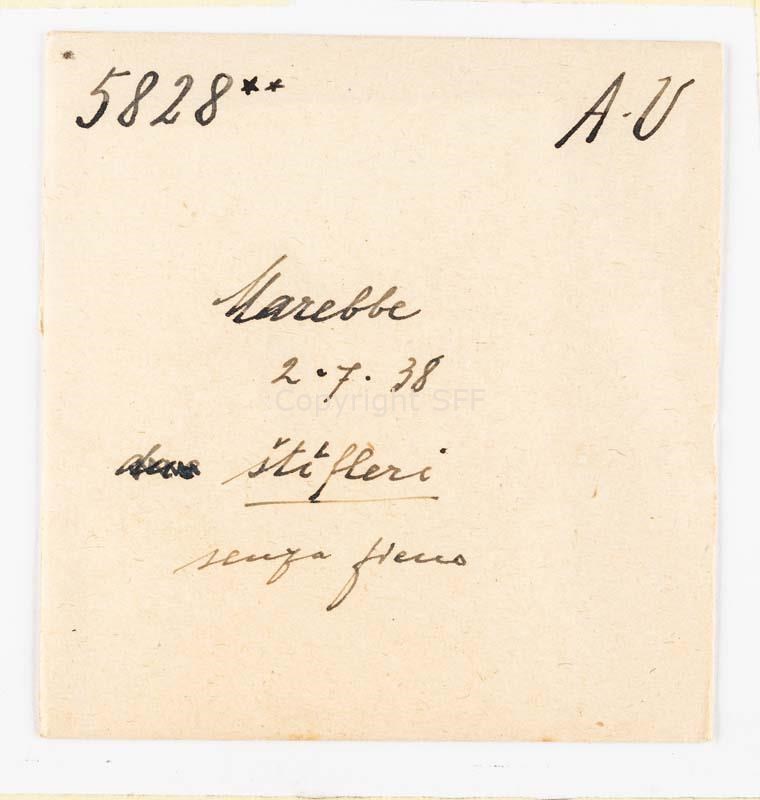 5828** A-V
Marebbe
2.7.38
Copyright SFF
štifleri
senza fieno